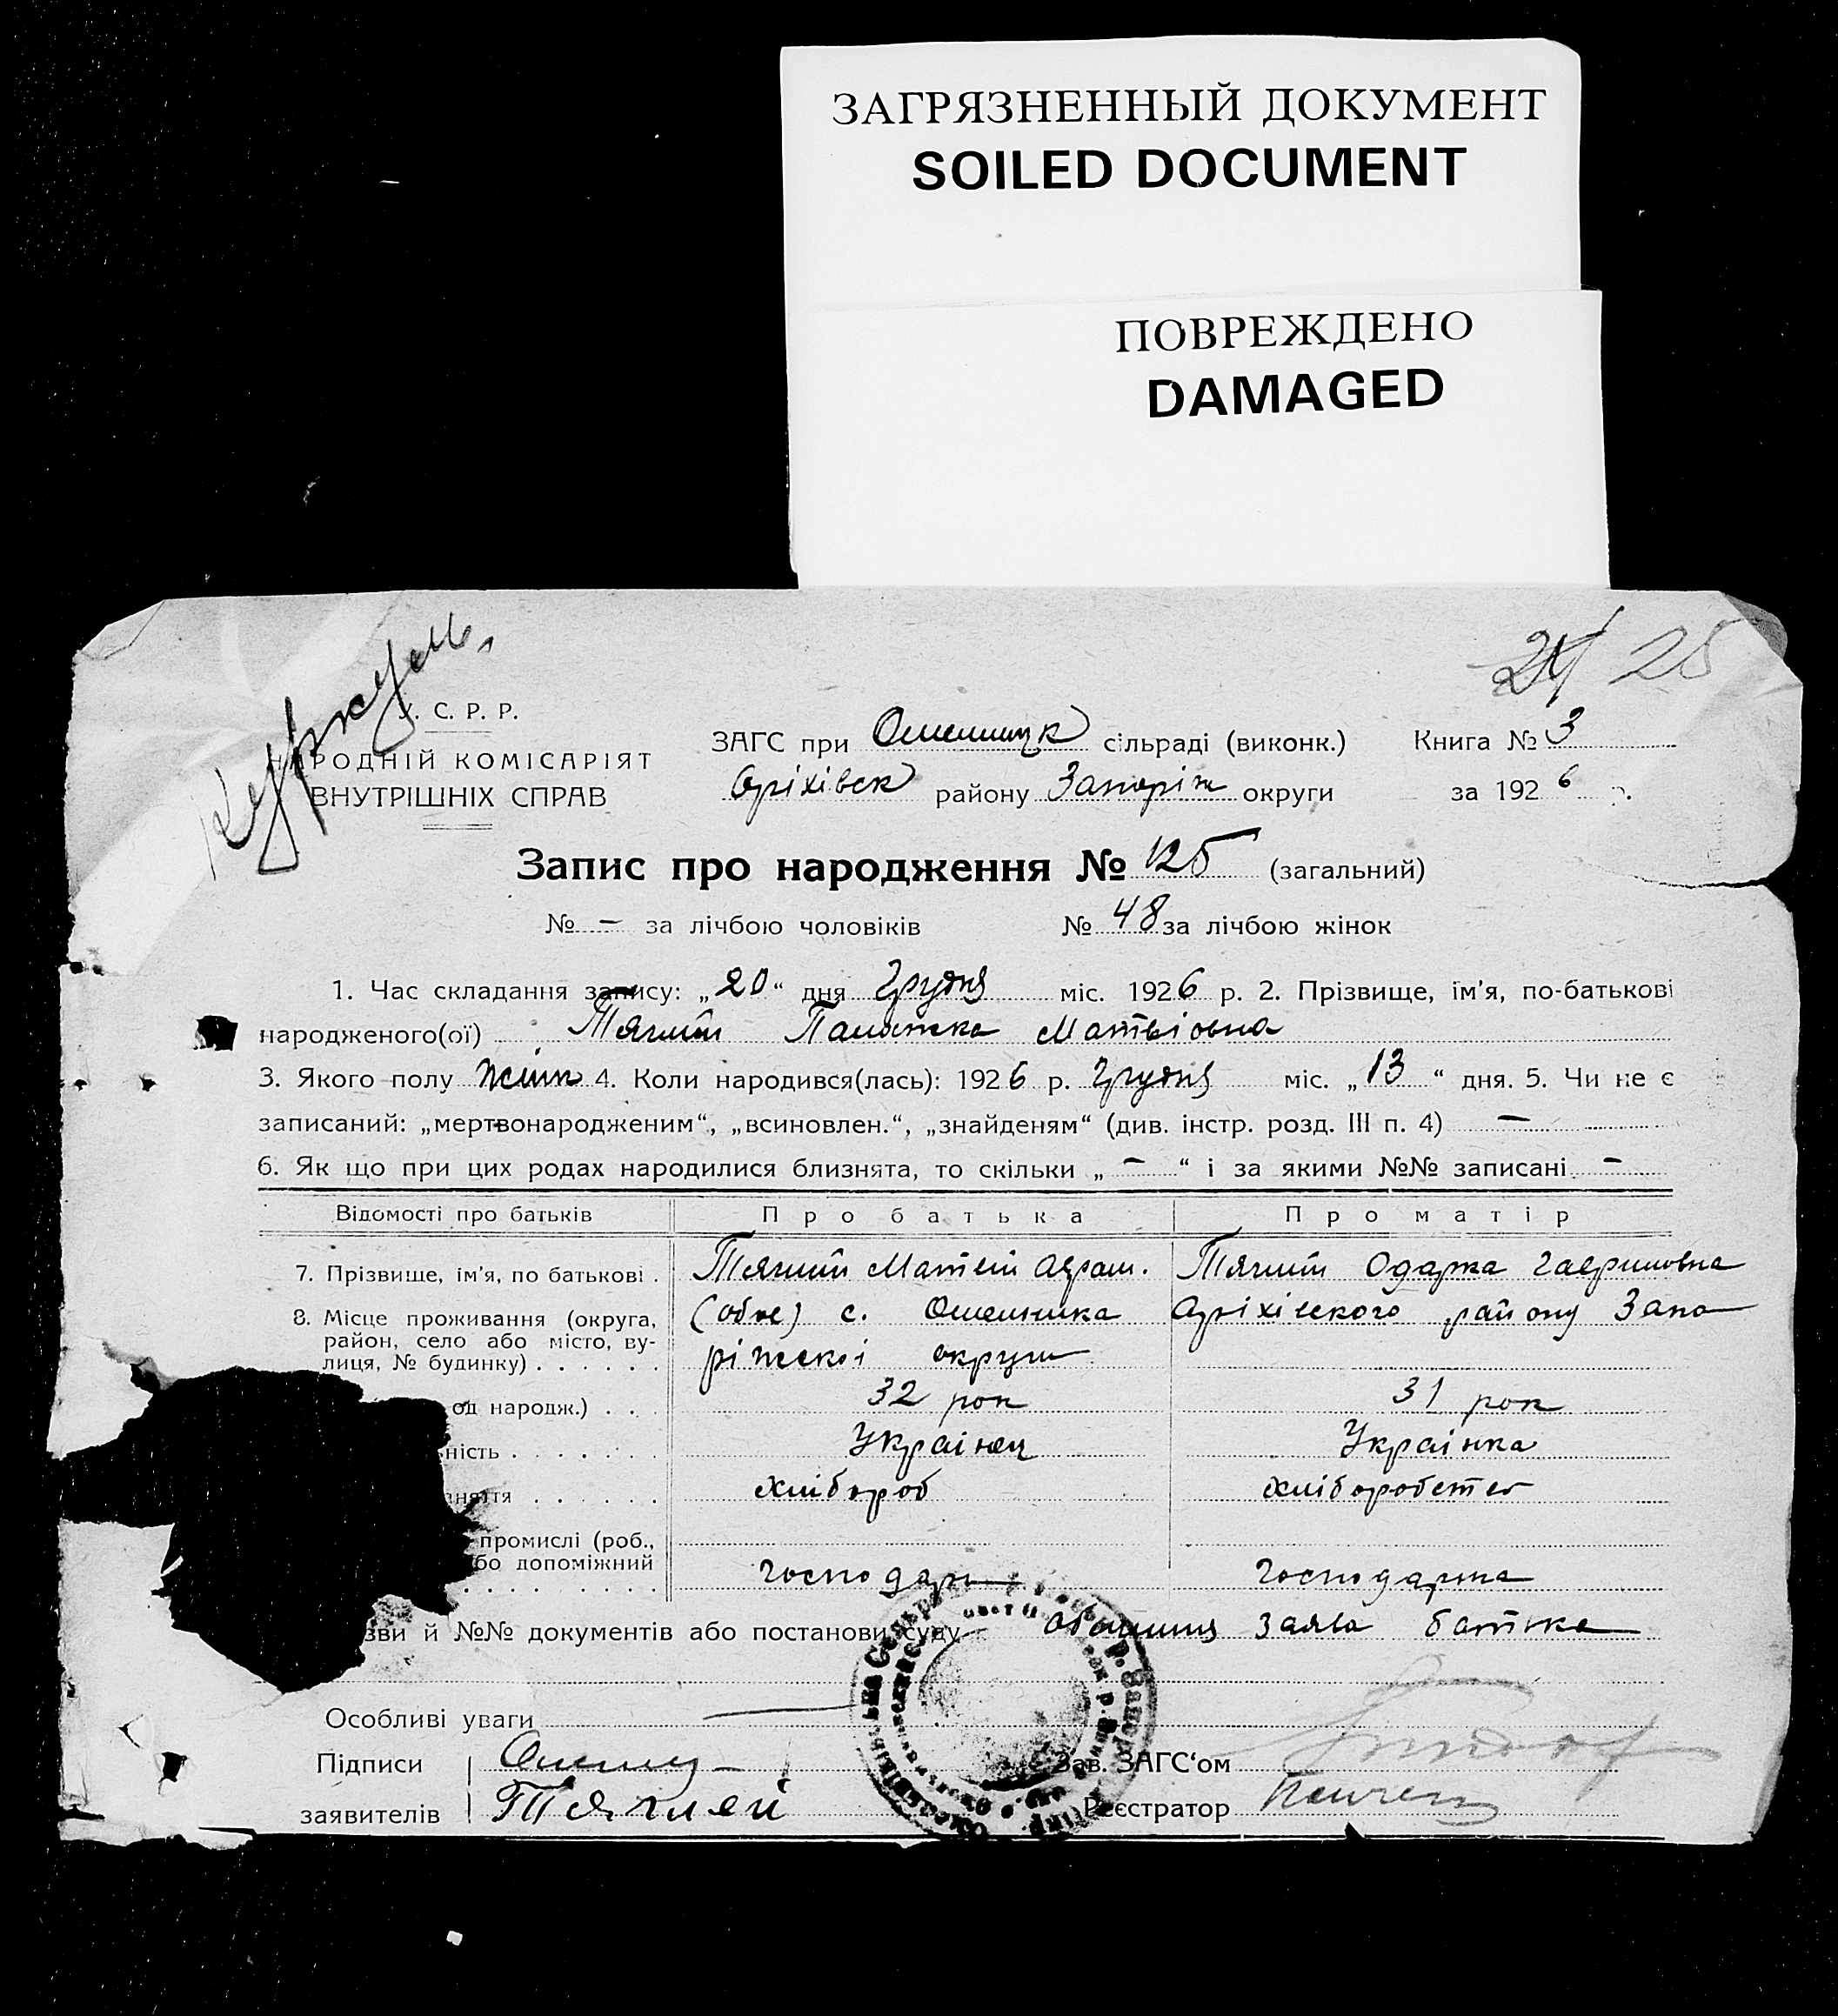 ЗАГРЯЗНЕННЫЙ ДОКУМЕНТ
SOILED DOCUMENT
ПОВРЕЖДЕНО
DAMAGED
25
У. С. Р. Р.
НАРОДНІЙ КОМІСАРІЯТ
ВНУТРІШНІХ СПРАВ
ЗАГС при сільраді (виконк.) Книга № 3
Оріхівск району Запоріж округи за 1926 р.
Запис про народження № 125 (загальний)
№ – за лічбою чоловіків № 48 за лічбою жінок
1. Час складання запису: „20“ дня Грудня міс. 1926 р. 2. Прізвище, ім'я, по-батькові
народженого(ої) Матвіовна
3. Якого полу жін 4. Коли народився(лась): 1926 р. Грудня міс. „13“ дня. 5. Чи не є
записаний: „мертвонародженим“, „всиновлен.“, „знайденям“ (див. інстр. розд. III п. 4) –
6. Як що при цих родах народилися близнята, то скільки „–“ і за якими №№ записані –
Відомості про батьків Про батька Про матір
7. Прізвище, ім'я, по батькові . Матвій Одарка Гавриловна
8. Місце проживання (округа, (обоє) с. Оріхівского району Запо
район, село або місто, ву- ріжскоі округи
лиця, № будинку) . . . . . .
од народж.) . . . 32 рок 31 рок
ність . . . . . . . Українец Українка
аняття . . . . . . хлібороб
промислі (роб.,
бо допоміжний
. . . . . . . . . господарь господарка
зви й №№ документів або постанови суду заява батька
Особливі уваги
Підписи
заявителів Тяглий
Зав. ЗАГС'ом
Реєстратор